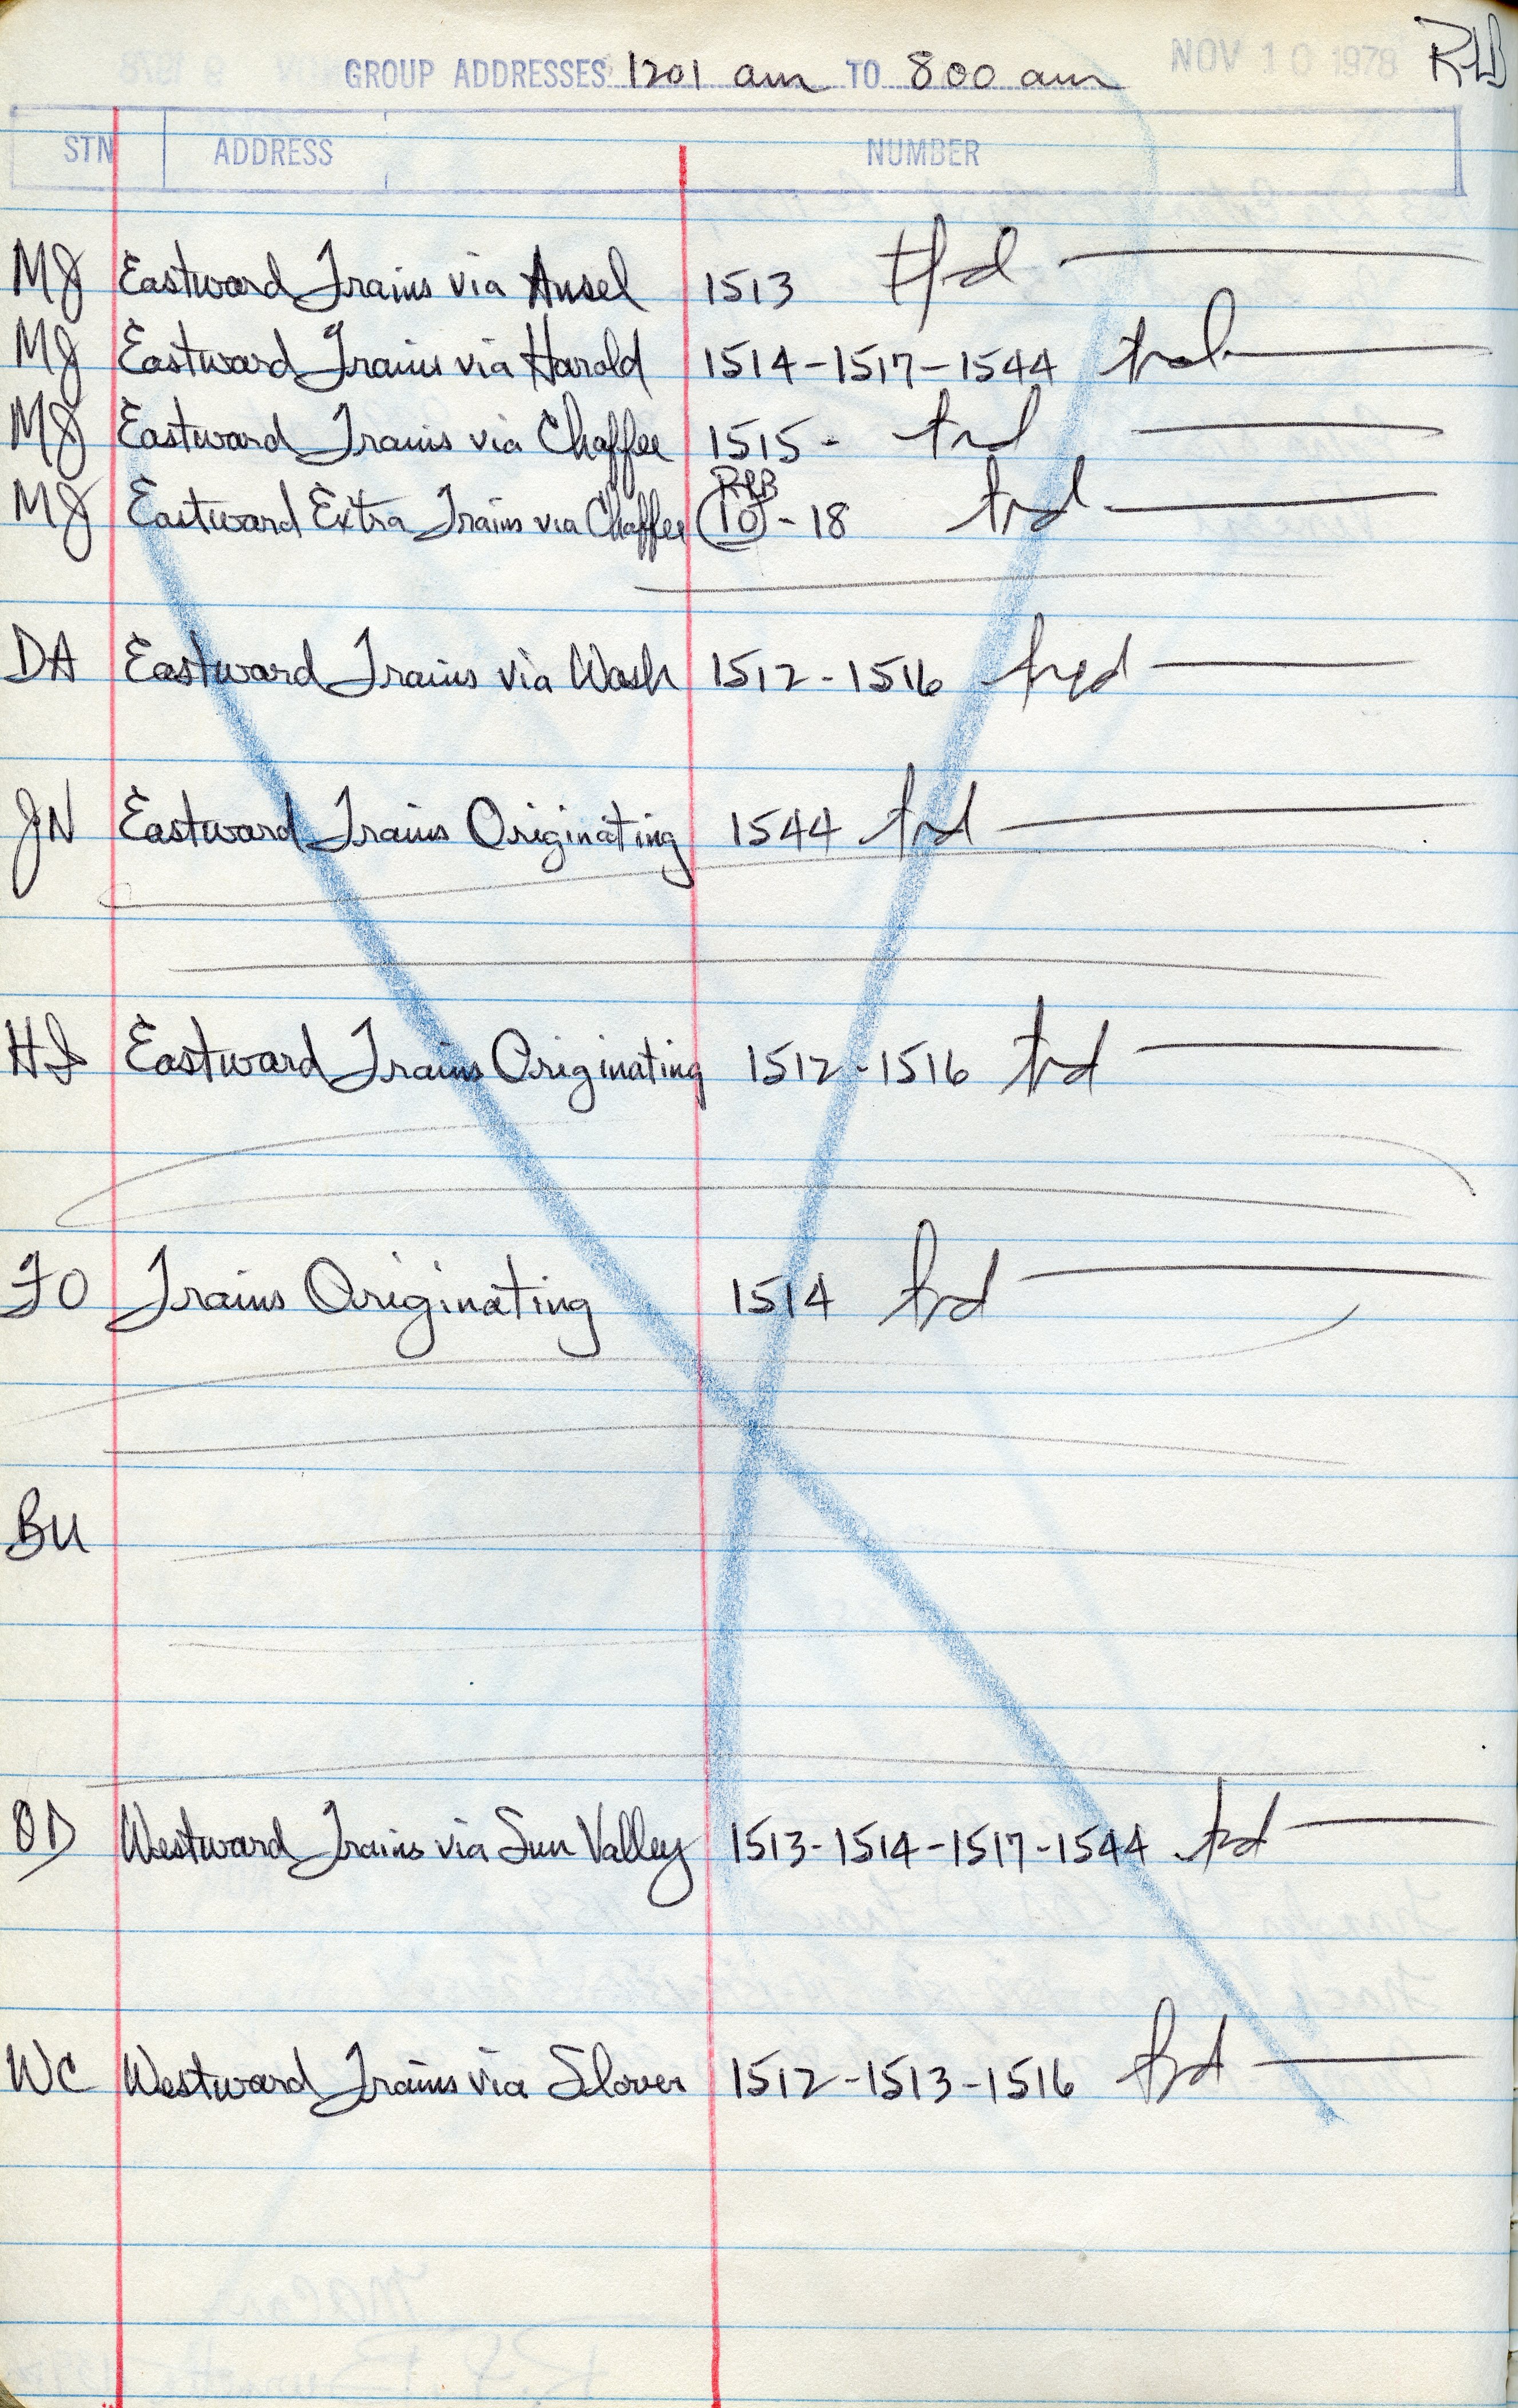 GROUP ADDRESSES 1201 am TO 800 am NOV 10 1978
STN ADDRESS NUMBER
MJ Eastward Trains via Ansel 1513
MJ Eastward Trains via Harold 1514-1517-1544
MJ Eastward Trains via Chaffee 1515-
RHB
MJ Eastward Extra Trains via Chaffee 10-18 trd
DA Eastward Trains via Wash 1512-1516
JN Eastward Trains Originating 1544 trd
HI Eastward Trains Originating 1512-1516 trd
FO Trains Originating 1514 trd
BU
OD Westward Trains via Sun Valley 1513-1514-1517-1544 trd
WC Westward Trains via Slover 1512-1513-1516 trd